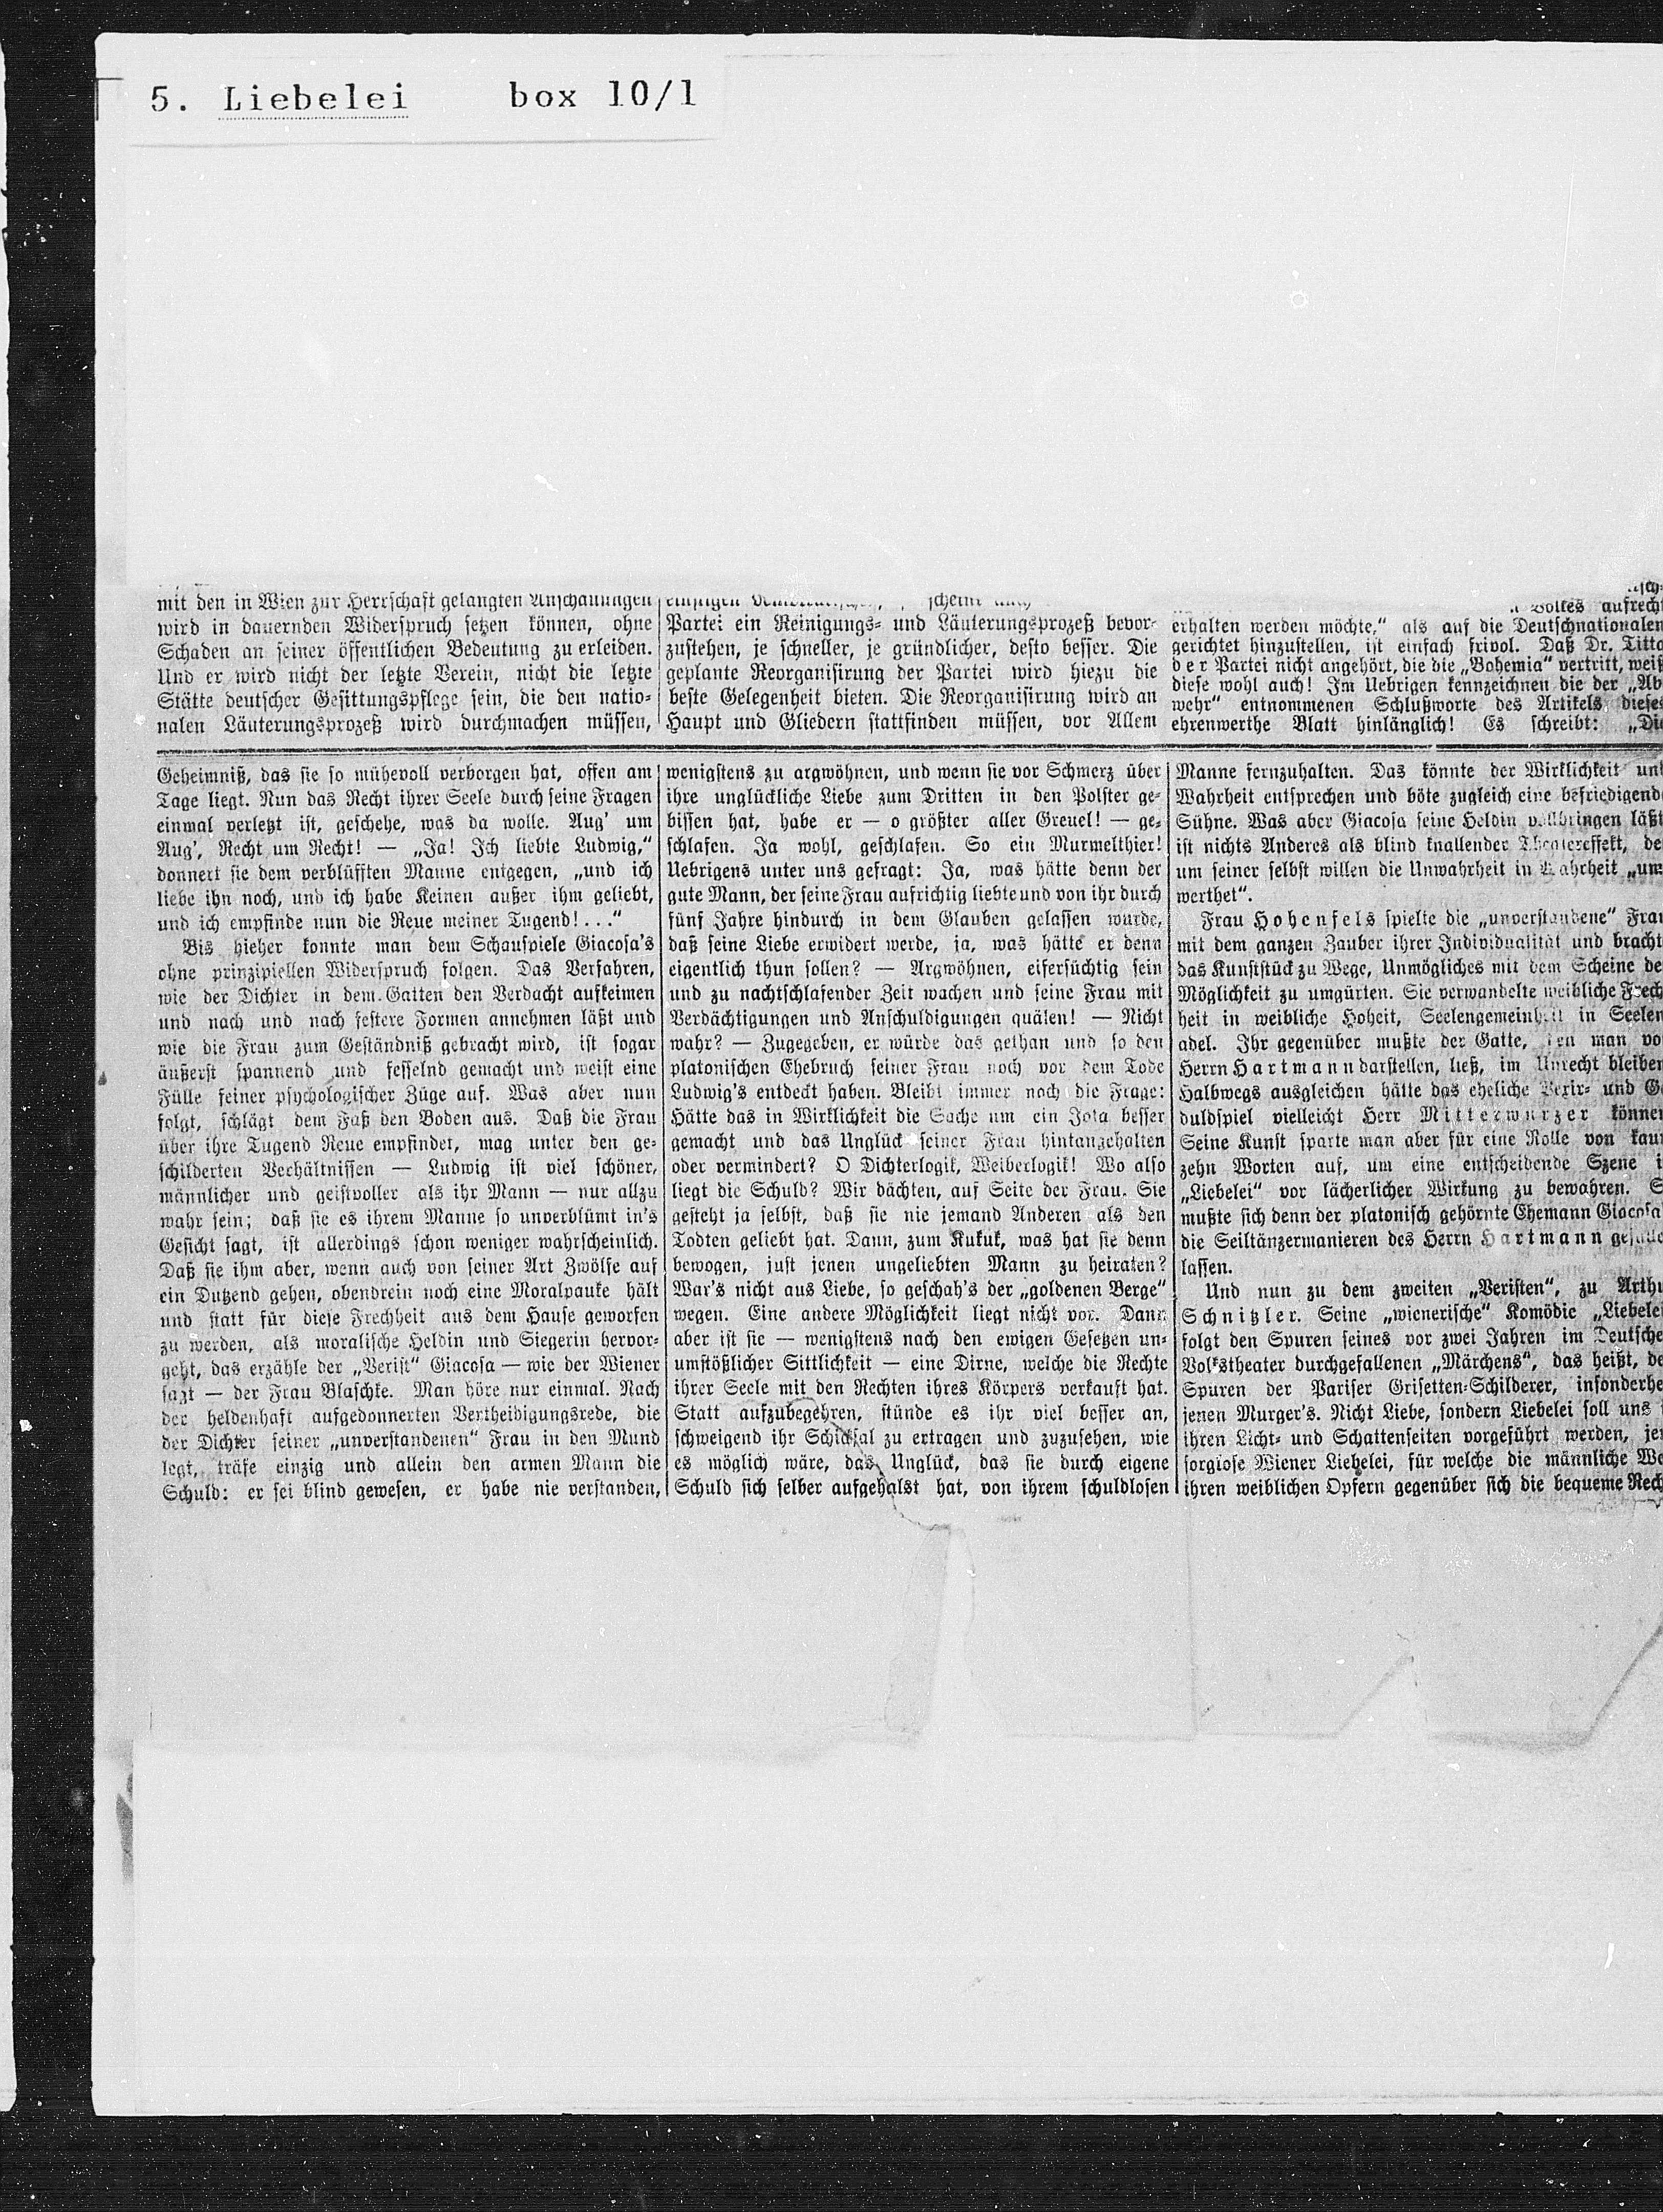 5. Liebelei box 10/1
mit den in Wien zur Herrschaft gelangten Anschauungen
wird in dauernden Widerspruch setzen können, ohne
Schaden an seiner öffentlichen Bedeutung zu erleiden.
Und er wird nicht der letzte Verein, nicht die letzte
Stätte deutscher Gesittungspflege sein, die den natio-
nalen Läuterungsprozeß wird durchmachen müssen,
einzigen scheint
Partei ein Reinigungs- und Läuterungsprozeß bevor-
zustehen, je schneller, je gründlicher, desto besser. Die
geplante Reorganisirung der Partei wird hiezu die
beste Gelegenheit bieten. Die Reorganisirung wird an
Haupt und Gliedern stattfinden müssen, vor Allem
Volkes aufrecht
erhalten werden möchte,“ als auf die Deutschnationalen
gerichtet hinzustellen, ist einfach frivol. Daß Dr. Titta
der Partei nicht angehört, die die „Bohemia“ vertritt, weiß
diese wohl auch! Im Uebrigen kennzeichnen die der „Ab
wehr“ entnommenen Schlußworte des Artikels dieses
ehrenwerthe Blatt hinlänglich! Es schreibt: „Die
Geheimniß, das sie so mühevoll verborgen hat, offen am
Tage liegt. Nun das Recht ihrer Seele durch seine Fragen
einmal verletzt ist, geschehe, was da wolle. Aug’ um
Aug’, Recht um Recht! — „Ja! Ich liebte Ludwig,“
donnert sie dem verblüfften Manne entgegen, „und ich
liebe ihn noch, und ich habe Keinen außer ihm geliebt,
und ich empfinde nun die Reue meiner Tugend!...“
Bis hieher konnte man dem Schauspiele Giacosa’s
ohne prinzipiellen Widerspruch folgen. Das Verfahren,
wie der Dichter in dem Gatten den Verdacht aufkeimen
und nach und nach festere Formen annehmen läßt und
wie die Frau zum Geständniß gebracht wird, ist sogar
äußerst spannend und fesselnd gemacht und weist eine
Fülle feiner psychologischer Züge auf. Was aber nun
folgt, schlägt dem Faß den Boden aus. Daß die Frau
über ihre Tugend Reue empfindet, mag unter den ge-
schilderten Verhältnissen — Ludwig ist viel schöner,
männlicher und geistvoller als ihr Mann — nur allzu
wahr sein; daß sie es ihrem Manne so unverblümt in’s
Gesicht sagt, ist allerdings schon weniger wahrscheinlich.
Daß sie ihm aber, wenn auch von seiner Art Zwölfe auf
ein Dutzend gehen, obendrein noch eine Moralpauke hält
und statt für diese Frechheit aus dem Hause geworfen
zu werden, als moralische Heldin und Siegerin hervor-
geht, das erzähle der „Verist“ Giacosa — wie der Wiener
sagt — der Frau Blaschke. Man höre nur einmal. Nach
der heldenhaft aufgedonnerten Vertheidigungsrede, die
der Dichter seiner „unverstandenen“ Frau in den Mund
legt, träfe einzig und allein den armen Mann die
Schuld: er sei blind gewesen, er habe nie verstanden,
wenigstens zu argwöhnen, und wenn sie vor Schmerz über
ihre unglückliche Liebe zum Dritten in den Polster ge-
bissen hat, habe er — o größter aller Greuel! — ge-
schlafen. Ja wohl, geschlafen. So ein Murmelthier!
Uebrigens unter uns gefragt: Ja, was hätte denn der
gute Mann, der seine Frau aufrichtig liebte und von ihr durch
fünf Jahre hindurch in dem Glauben gelassen wurde,
daß seine Liebe erwidert werde, ja, was hätte er denn
eigentlich thun sollen? — Argwöhnen, eifersüchtig sein
und zu nachtschlafender Zeit wachen und seine Frau mit
Verdächtigungen und Anschuldigungen quälen! — Nicht
wahr? — Zugegeben, er würde das gethan und so den
platonischen Ehebruch seiner Frau noch vor dem Tode
Ludwig’s entdeckt haben. Bleibt immer noch die Frage:
Hätte das in Wirklichkeit die Sache um ein Jota besser
gemacht und das Unglück seiner Frau hintangehalten
oder vermindert? O Dichterlogik, Weiberlogik! Wo also
liegt die Schuld? Wir dächten, auf Seite der Frau. Sie
gesteht ja selbst, daß sie nie jemand Anderen als den
Todten geliebt hat. Dann, zum Kukuk, was hat sie denn
bewogen, just jenen ungeliebten Mann zu heiraten?
War’s nicht aus Liebe, so geschah’s der „goldenen Berge“
wegen. Eine andere Möglichkeit liegt nicht vor. Dann
aber ist sie — wenigstens nach den ewigen Gesetzen un-
umstößlicher Sittlichkeit — eine Dirne, welche die Rechte
ihrer Seele mit den Rechten ihres Körpers verkauft hat.
Statt aufzubegehren, stünde es ihr viel besser an,
schweigend ihr Schicksal zu ertragen und zuzusehen, wie
es möglich wäre, das Unglück, das sie durch eigene
Schuld sich selber aufgehalst hat, von ihrem schuldlosen
Manne fernzuhalten. Das könnte der Wirklichkeit und
Wahrheit entsprechen und böte zugleich eine befriedigende
Sühne. Was aber Giacosa seine Heldin vollbringen läßt
ist nichts Anderes als blind knallender Theatereffekt, de
um seiner selbst willen die Unwahrheit in Wahrheit „um
werthet“.
Frau Hohenfels spielte die „unverstandene“ Frau
mit dem ganzen Zauber ihrer Individualität und bracht
das Kunststück zu Wege, Unmögliches mit dem Scheine de
Möglichkeit zu umgürten. Sie verwandelte weibliche Frech
heit in weibliche Hoheit, Seelengemeinheit in Seelen
adel. Ihr gegenüber mußte der Gatte, den man vo
Herrn Hartmann darstellen, ließ, im Unrecht bleiben
Halbwegs ausgleichen hätte das eheliche Vexir- und Ge
duldspiel vielleicht Herr Mitterwurzer können
Seine Kunst sparte man aber für eine Rolle von kaum
zehn Worten auf, um eine entscheidende Szene i
„Liebelei“ vor lächerlicher Wirkung zu bewahren. S
mußte sich denn der platonisch gehörnte Ehemann Giacosa
die Seiltänzermanieren des Herrn Hartmann gefalle
lassen.
Und nun zu dem zweiten „Veristen“, zu Arthu
Schnitzler. Seine „wienerische“ Komödie „Liebelei
folgt den Spuren seines vor zwei Jahren im Deutsche
Volkstheater durchgefallenen „Märchens“, das heißt, de
Spuren der Pariser Grisetten-Schilderer, insonderhe
jenen Murger’s. Nicht Liebe, sondern Liebelei soll uns
ihren Licht- und Schattenseiten vorgeführt werden, jen
sorglose Wiener Liebelei, für welche die männliche We
ihren weiblichen Opfern gegenüber sich die bequeme Rech